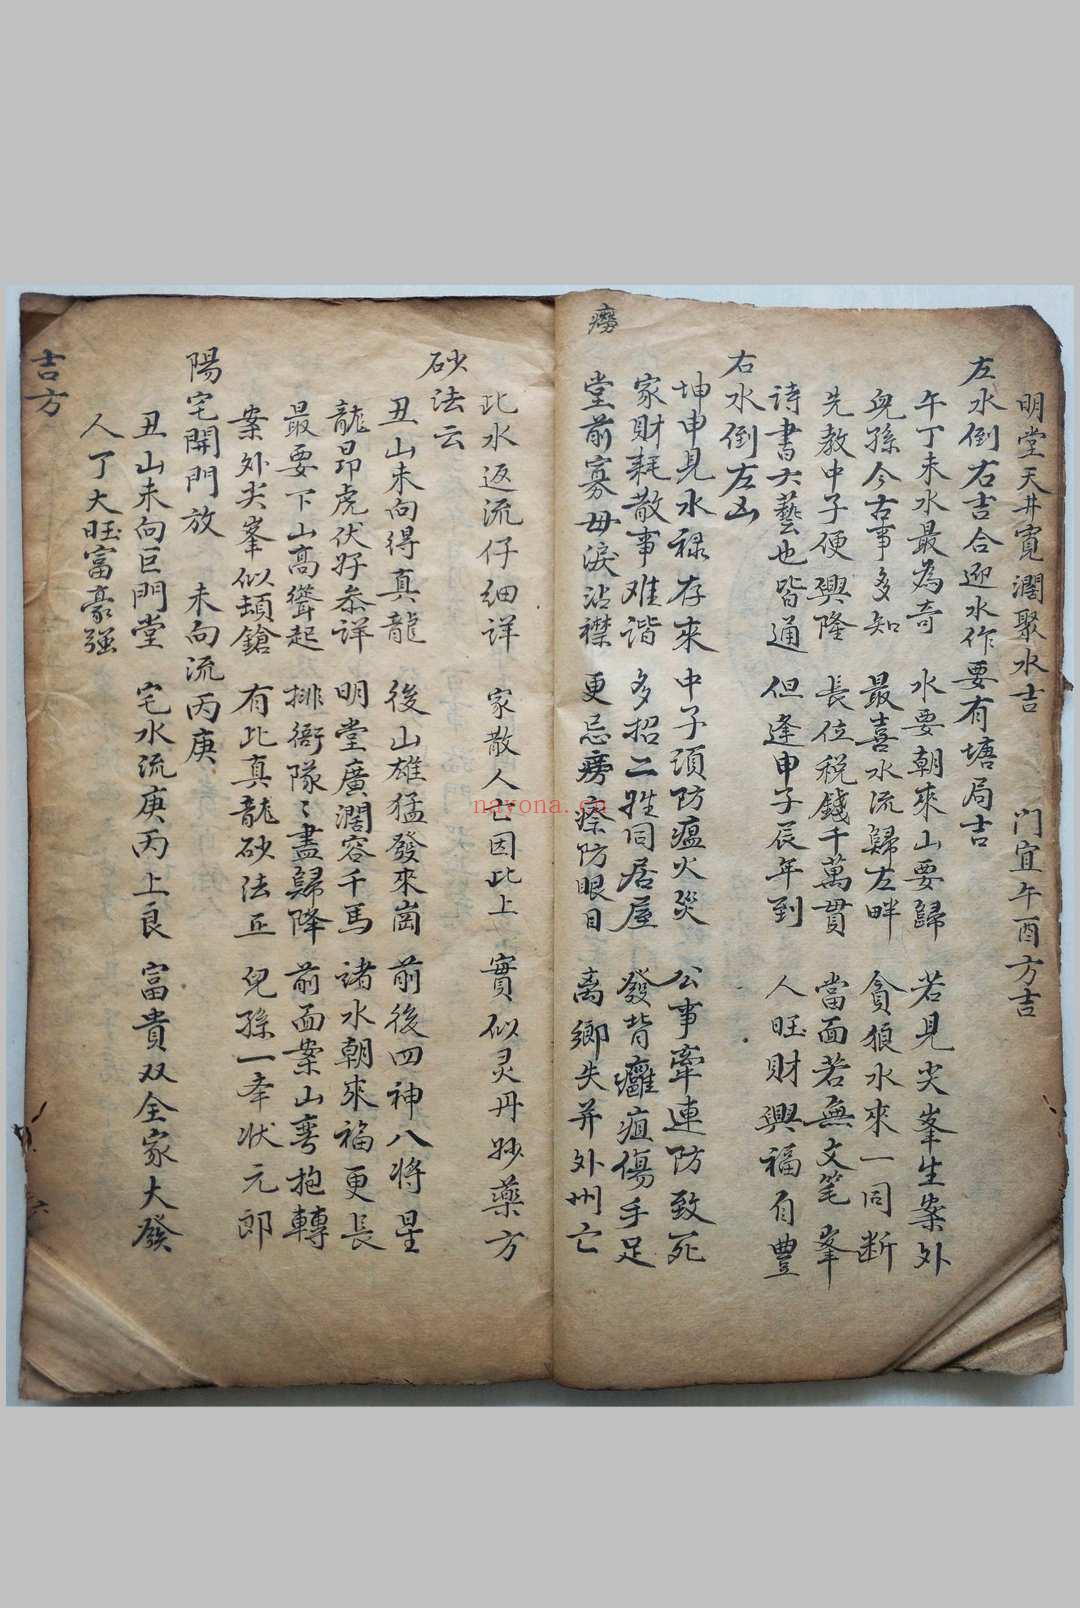 明堂天井寬濶聚水吉 门宜午酉方吉
左水倒右吉合迎水作要有塘局吉
午丁未水最為奇 水要朝來山要歸 若見尖峯生案外
兒孫今古事多知 最喜水流歸左畔 貪狼水來一同断
先教中子便興隆 長位税錢千萬貫 當面若無文笔峯
詩書六藝也皆通 但逢申子辰年到 人旺財興福自豊
右水倒左凶
坤申見水禄存來 中子須防瘟火災 公事牽連防致死
家財耗散事难谐 多招二姓同居屋 發背癰疽傷手足
堂前寡母淚沾襟 更忌痨瘵防眼目 离鄉失井外州亡
癆
此水返流仔细详 家散人亡因此上 實似灵丹妙藥方
砂法云
丑山未向得真龍 後山雄猛發來崗 前後四神八将星
龍昂虎伏好叅详 明堂廣濶容千馬 诸水朝來福更長
最要下山高聳起 排衙隊〻盡歸降 前面案山弯抱轉
案外尖峯似頓鎗 有此真龍砂法正 兒孫一本状元郎
陽宅開門放 未向流丙庚
丑山未向巨門堂 宅水流庚丙上良 富貴双全家大發
人丁大旺富豪强
吉方
nayona.cn